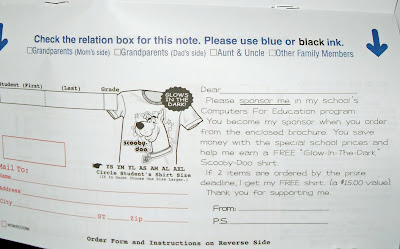 Check the relation box for this note. Please use blue or black ink.
☐Grandparents (Mom's side) ☐Grandparents (Dad's side) ☐Aunt & Uncle ☐Other Family Members
Student (First) (Last) Grade
GLOWS
IN THE
DARK!
scooby-
doo
YS YM YL AS AM AL AXL
Circle Student's Shirt Size
Mail To:
Name
Address
City ST Zip
Dear
Please sponsor me in my school's
Computers For Education program.
You become my sponsor when you order
from the enclosed brochure. You save
money with the special school prices and
help me earn a FREE "Glow-In-The-Dark"
Scooby-Doo shirt.
If 2 items are ordered by the prize
deadline, I get my FREE shirt. (a $15.00 value)
Thank you for supporting me.
From:
P.S.
Order Form and Instructions on Reverse Side